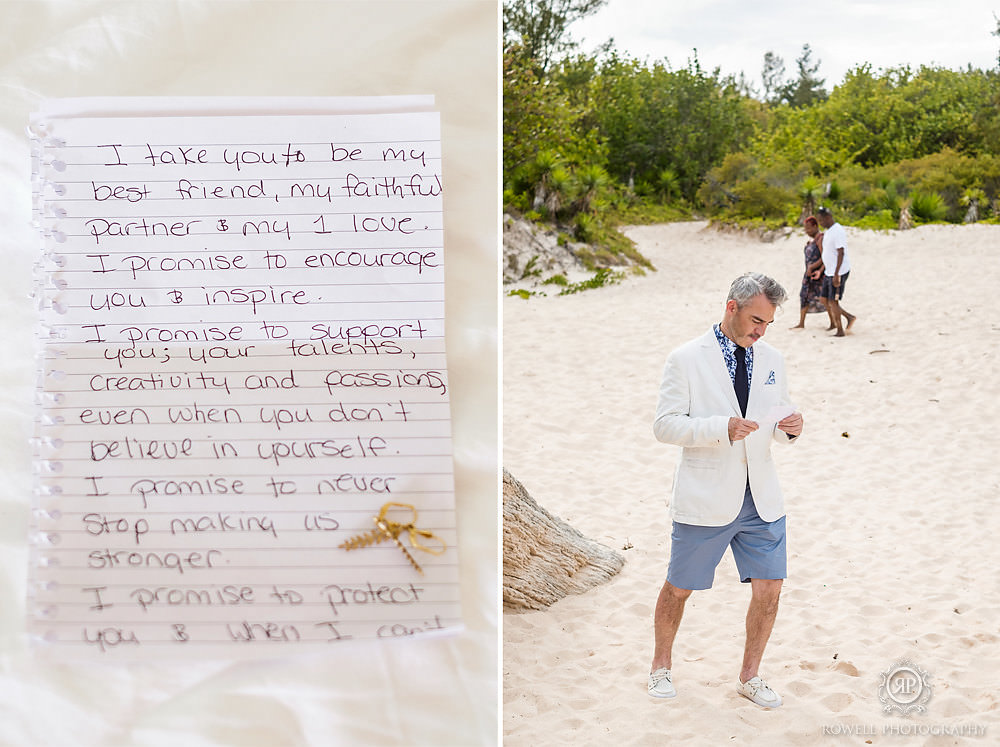 I take you to be my
best friend, my faithful
partner & my 1 love.
I promise to encourage
you & inspire.
I promise to support
you; your talents,
creativity and passions,
even when you don't
believe in yourself.
I promise to never
stop making us
stronger.
I promise to protect
you & when I can't
RP
ROWELL PHOTOGRAPHY